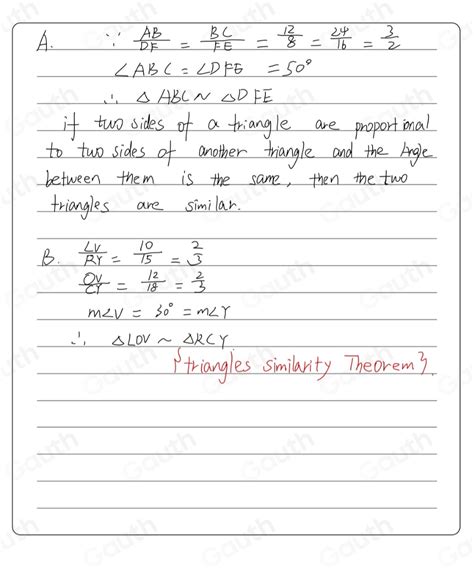 A. ∵ AB/DF = BC/FE = 12/8 = 24/16 = 3/2
∠ABC = ∠DFE = 50°
∴ △ABC ~ △DFE
if two sides of a triangle are proportional
to two sides of another triangle and the Angle
between them is the same, then the two
triangles are similar.
B. LV/RY = 10/15 = 2/3
OV/CY = 12/18 = 2/3
m∠V = 30° = m∠Y
∴ △LOV ~ △RCY.
{triangles similarity Theorem}.
Gauth